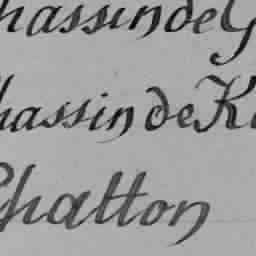 hassindeG
hassindeK
Chatton